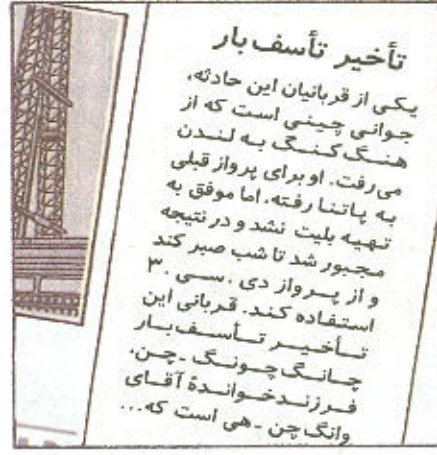 تأخیر تأسف‌بار
یکی از قربانیان این حادثه،
جوانی چینی است که از
هنگ‌کنگ به لندن
می‌رفت. او برای پرواز قبلی
به پاتنا رفته، اما موفق به
تهیه بلیت نشد و در نتیجه
مجبور شد تا شب صبر کند
و از پرواز دی.سی.۳۰
استفاده کند. قربانی این
تأخیر تأسف‌بار
چانگ‌چونگ ـ‌چن،
فرزندخواندهٔ آقای
وانگ چن ـ‌هی است که...